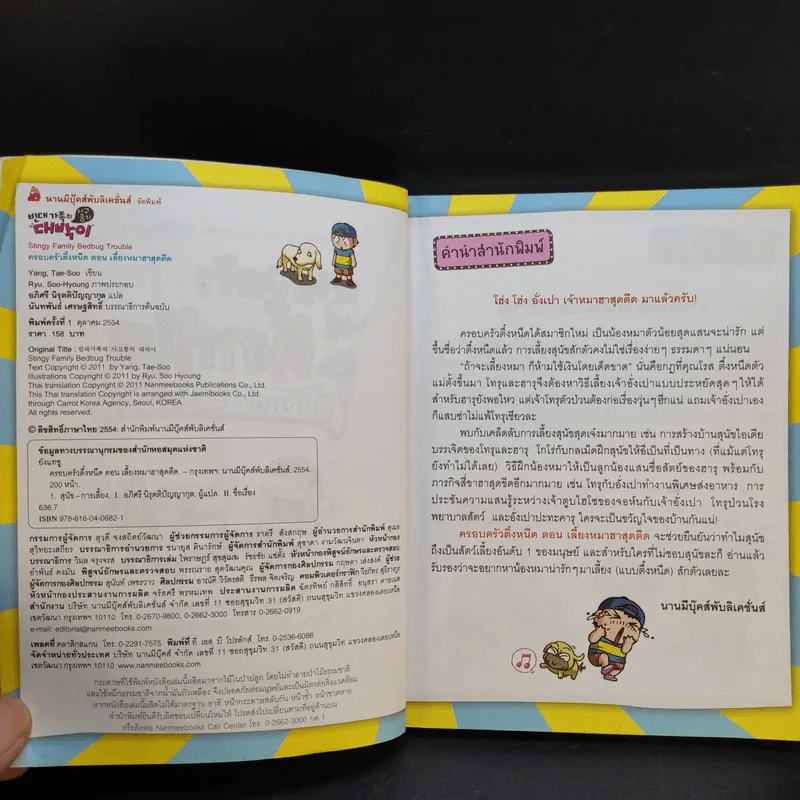 นานมีบุ๊คส์พับลิเคชั่นส์ จัดพิมพ์
빈대가족의
대박이
Stingy Family Bedbug Trouble
ครอบครัวตึ๋งหนืด ตอน เลี้ยงหมาฮาสุดตืด
Yang, Tae-Soo เขียน
Ryu, Soo-Hyoung ภาพประกอบ
อภิศรี นิรุตติปัญญากุล แปล
นันทพันธ์ เศรษฐสิทธิ์ บรรณาธิการต้นฉบับ
พิมพ์ครั้งที่ 1 ตุลาคม 2554
ราคา 158 บาท
Original Title : 빈대가족의 사고뭉치 대박이
Stingy Family Bedbug Trouble
Text Copyright © 2011 by Yang, Tae-Soo
Illustrations Copyright © 2011 by Ryu, Soo Hyoung
Thai translation Copyright © 2011 Nanmeebooks Publications Co., Ltd.
This Thai translation Copyright is arranged with Jaemibooks Co., Ltd.
through Carrot Korea Agency, Seoul, KOREA
All rights reserved.
© ลิขสิทธิ์ภาษาไทย 2554: สำนักพิมพ์นานมีบุ๊คส์พับลิเคชั่นส์
ข้อมูลทางบรรณานุกรมของสำนักหอสมุดแห่งชาติ
ยังแทซู.
ครอบครัวตึ๋งหนืด ตอน เลี้ยงหมาฮาสุดตืด. – กรุงเทพฯ: นานมีบุ๊คส์พับลิเคชั่นส์, 2554.
200 หน้า.
1. สุนัข – การเลี้ยง. I. อภิศรี นิรุตติปัญญากุล, ผู้แปล. II. ชื่อเรื่อง
636.7
ISBN 978-616-04-0682-1
กรรมการผู้จัดการ สุวดี จงสถิตย์วัฒนา ผู้ช่วยกรรมการผู้จัดการ ราตรี สังสกฤษ ผู้อำนวยการสำนักพิมพ์
บรรณาธิการอำนวยการ ชนายุส ตินารักษ์ ผู้จัดการสำนักพิมพ์ สุชาดา งามวัฒนจินดา หัวหน้ากอง
บรรณาธิการ วิมล จรุงจรส บรรณาธิการเล่ม ไพรายฎร์ สุขสุเมฆ หัวหน้ากองพิสูจน์อักษรและตรวจสอบ
พิสูจน์อักษรและตรวจสอบ พรรณราย สุดวัฒนคุณ ผู้จัดการกองศิลปกรรม กฤษดา เส่งสงค์ ผู้ช่วย
ผู้จัดการกองศิลปกรรม สุนันท์ เพชรวาว ศิลปกรรม
หัวหน้ากองประสานงานการผลิต จรัสศรี พรหมเทพ ประสานงานการผลิต
สำนักงาน บริษัท นานมีบุ๊คส์พับลิเคชั่นส์ จำกัด เลขที่ 11 ซอยสุขุมวิท 31 (สวัสดี) ถนนสุขุมวิท แขวงคลองเตยเหนือ
เขตวัฒนา กรุงเทพฯ 10110 โทร. 0-2670-9800, 0-2662-3000 โทรสาร 0-2662-0919
e-mail: editorial@nanmeebooks.com
เพลตที่ คลาสิกสแกน โทร. 0-2291-7575 พิมพ์ที่ ที เอส บี โปรดักส์ โทร. 0-2536-6086
จัดจำหน่ายทั่วประเทศ บริษัท นานมีบุ๊คส์ จำกัด เลขที่ 11 ซอยสุขุมวิท 31 (สวัสดี) ถนนสุขุมวิท แขวงคลองเตยเหนือ
เขตวัฒนา กรุงเทพฯ 10110 www.nanmeebooks.com
กระดาษที่ใช้พิมพ์หนังสือเล่มนี้ผลิตมาจากไม้ในป่าปลูก โดยไม่ทำลายป่าไม้ธรรมชาติ
และใช้หมึกธรรมชาติจากน้ำมันถั่วเหลือง จึงปลอดภัยต่อมนุษย์และเป็นมิตรต่อสิ่งแวดล้อม
หากหนังสือเล่มนี้ผลิตไม่ได้มาตรฐาน อาทิ หน้ากระดาษสลับกัน หน้าซ้ำ หน้าขาดหาย
สำนักพิมพ์ยินดีรับผิดชอบเปลี่ยนใหม่ให้ โปรดส่งไปเปลี่ยนตามที่อยู่ด้านบน
หรือติดต่อ Nanmeebooks Call Center โทร. 0-2662-3000 กด 1
คำนำสำนักพิมพ์
โฮ่ง โฮ่ง อั่งเปา เจ้าหมาฮาสุดตืด มาแล้วครับ!
ครอบครัวตึ๋งหนืดได้สมาชิกใหม่ เป็นน้องหมาตัวน้อยสุดแสนจะน่ารัก แต่
ขึ้นชื่อว่าตึ๋งหนืดแล้ว การเลี้ยงสุนัขสักตัวคงไม่ใช่เรื่องง่ายๆ ธรรมดาๆ แน่นอน
"ถ้าจะเลี้ยงหมา ก็ห้ามใช้เงินโดยเด็ดขาด" นั่นคือกฎที่คุณโรส ตึ๋งหนืดตัว
แม่ตั้งขึ้นมา โทรุและฮารุจึงต้องหาวิธีเลี้ยงเจ้าอั่งเปาแบบประหยัดสุดๆ ให้ได้
สำหรับฮารุยังพอไหว แต่เจ้าโทรุตัวป่วนต้องก่อเรื่องวุ่นๆ อีกแน่ แถมเจ้าอั่งเปาเอง
ก็แสบซ่าไม่แพ้โทรุเชียวละ
พบกับเคล็ดลับการเลี้ยงสุนัขสุดเจ๋งมากมาย เช่น การสร้างบ้านสุนัขไอเดีย
บรรเจิดของโทรุและฮารุ โกโร่กับกลเม็ดฝึกสุนัขให้อึเป็นที่เป็นทาง (ที่แม้แต่โทรุ
ยังทำไม่ได้เลย) วิธีฝึกน้องหมาให้เป็นลูกน้องแสนซื่อสัตย์ของฮารุ พร้อมกับ
ภารกิจสี่ขาฮาสุดขีดอีกมากมาย เช่น โทรุกับอั่งเปาทำงานพิเศษส่งอาหาร การ
ประชันความแสนรู้ระหว่างเจ้าตูบไฮโซของจอห์นกับเจ้าอั่งเปา โทรุป่วนโรง
พยาบาลสัตว์ และอั่งเปาปะทะคารุ ใครจะเป็นขวัญใจของบ้านกันแน่!
ครอบครัวตึ๋งหนืด ตอน เลี้ยงหมาฮาสุดตืด จะช่วยยืนยันว่าทำไมสุนัข
ถึงเป็นสัตว์เลี้ยงอันดับ 1 ของมนุษย์ และสำหรับใครที่ไม่ชอบสุนัขละก็ อ่านแล้ว
รับรองว่าจะอยากหาน้องหมาน่ารักๆ มาเลี้ยง (แบบตึ๋งหนืด) สักตัวเลยละ
นานมีบุ๊คส์พับลิเคชั่นส์